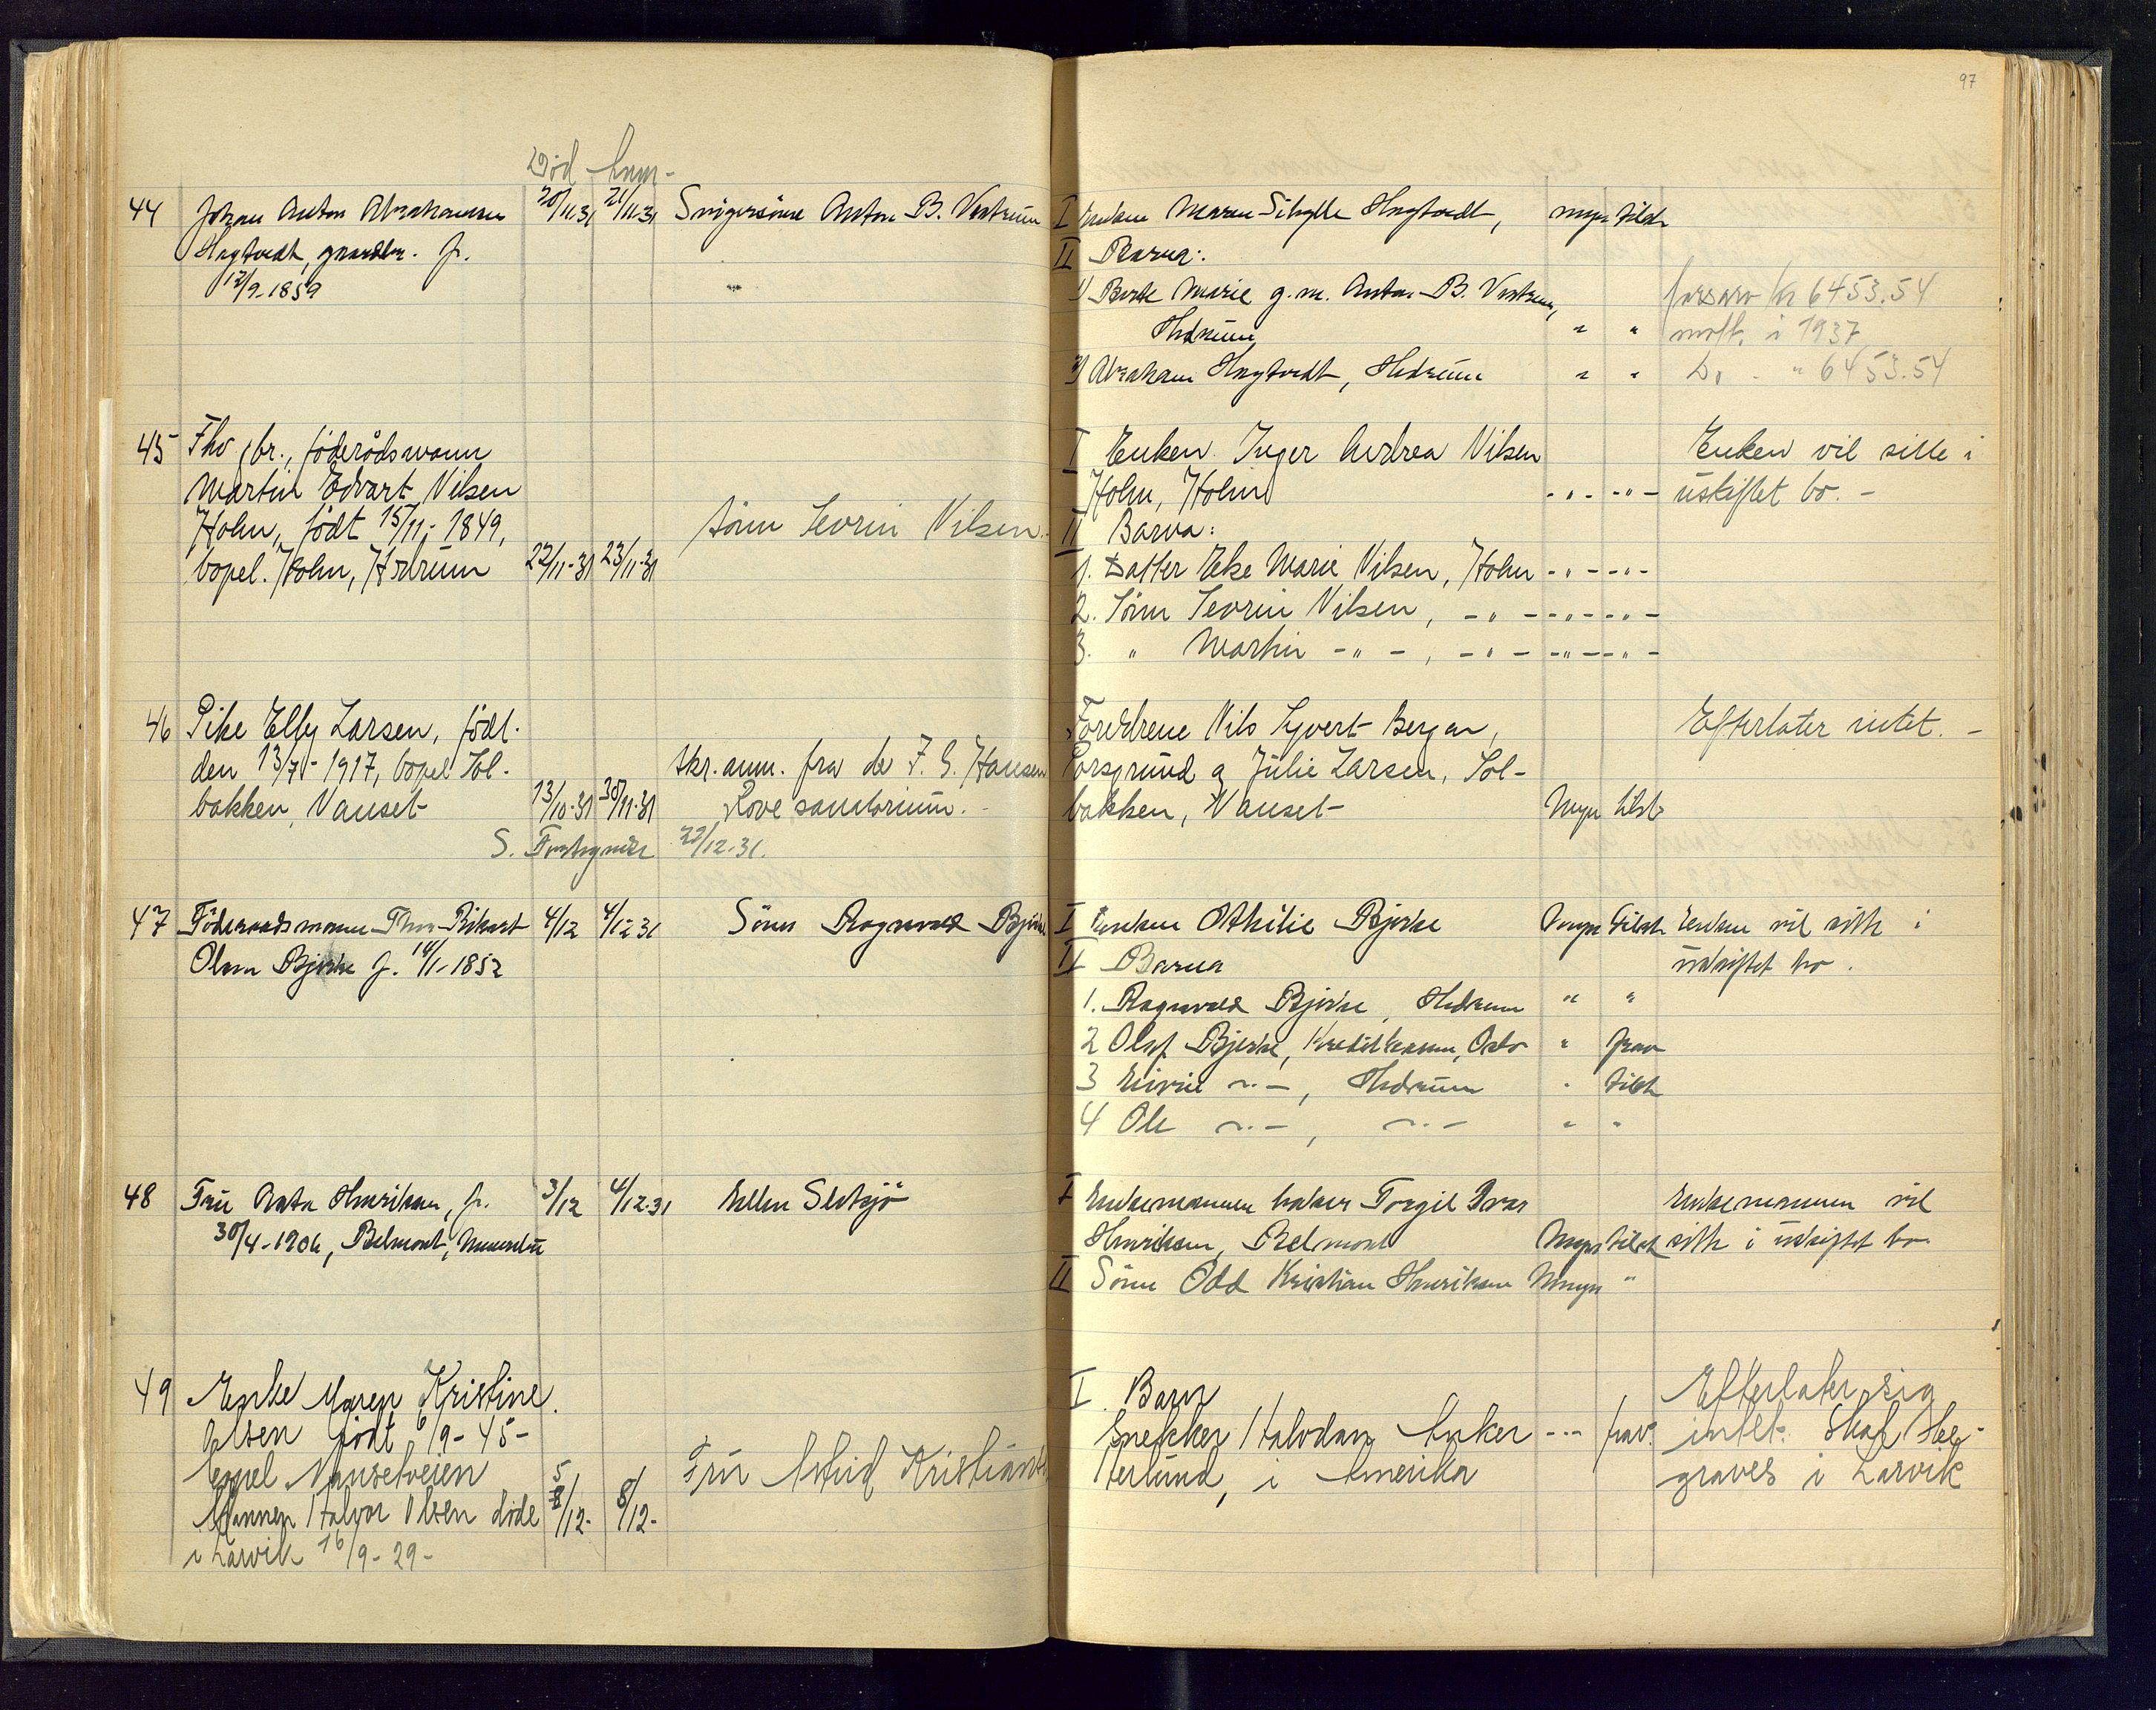 97
Död
44 Johan Anton Abrahamsen 20/11.31 21/11.31 Svigersönn Anton B. Vestrum
Høgtvedt, gaardbr. f.
12/9-1859
I Enken Maren Sibylle Høgtvedt, mynd tilst
II Barna:
1) Berte Marie g.m. Anton B. Vestrum, farsarv kr 6453.54
Hedrum " " mott. i 1937
2) Abraham Høgtvedt, Hedrum " " Do - " 6453.54
45 Fhv gbr., föderådsmann
Martin Edvart Nilsen
Holm, födt 15/11-1849,
bopel. Holm, Hedrum 22/11-31 23/11-31
sönn Sevrin Nilsen
I Enken Inger Andrea Nilsen Enken vil sitte i
Holm, Holm -"- -"- uskiftet bo. -
II Barna:
1. Datter Elise Marie Nilsen, Holm -"- -"-
2. Sönn Sevrin Nilsen, -"- -"- -"-
3. " Martin -"-, -"- -"- -"-
46 Pike Elly Larsen, födt.
den 13/7-1917, bopel Sol-
bakken, Nanset 13/10-31 30/11-31
skr. anm. fra dr F. G. Hansen
Röve sanatorium.
S. 22/12-31.
Foreldrene Nils Syvert Bergan, Efterlater intet. -
Porsgrund og Julie Larsen, Sol-
bakken, Nanset Mynd tilst
47 Föderaadsmann Thor Rikart 4/12 4/12 31 Sönn Ragnvald Bjerke
Olsen Bjerke f. 14/1-1852
I Enken Othilie Bjerke Mynd tilst Enken vil sitte i
II Barna uskiftet bo.
1. Ragnvald Bjerke, Hedrum " "
2 Olaf Bjerke, Kreditkassen, Oslo " frav
3 Eivin -"-, Hedrum " tilst
4 Ole -"-, -"- " "
48 Fru Asta Henriksen, f. 3/12 4/12.31 Ellen Sletsjö
30/4-1904, Belmont,
I Enkemannen baker Torgil Henriksen, Belmont Mynd tilst Enkemannen vil
sitte i uskiftet bo.
II Sönn Odd Kristian Henriksen Umynd "
49 Enke Maren Kristine
Olsen födt 6/9-45-
bopel Nansetveien
Mannen Halvor Olsen döde 5/12- 8/12-
i Larvik 16/9-29-
Fru Astrid Kristiansen
I. Barn Efterlater sig
Snekker Halvdan Anker --- frav. intet. Skal be-
i Amerika graves i Larvik